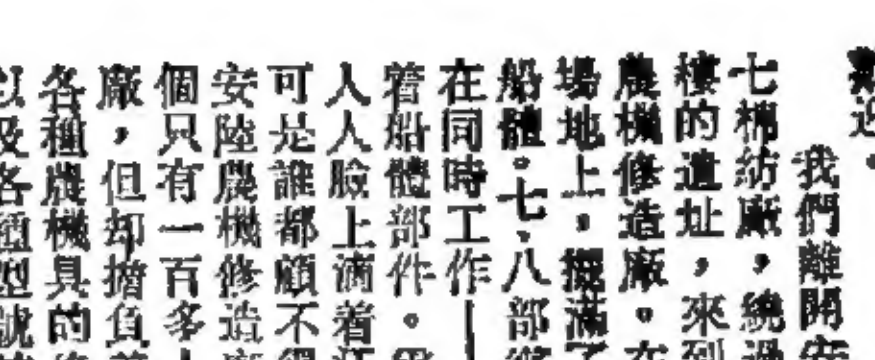 迎。
我們離開安
七棉紡廠，繞過
樓的遺址，來到
農機修造廠。在
場地上，擺滿了
船體。七、八部
在同時工作—
着船體部件。
人人臉上滴着汗
可是誰都顧不得
安陸農機修造廠
個只有一百多
廠，但却擔負着
各種農機具的
以及各種型號